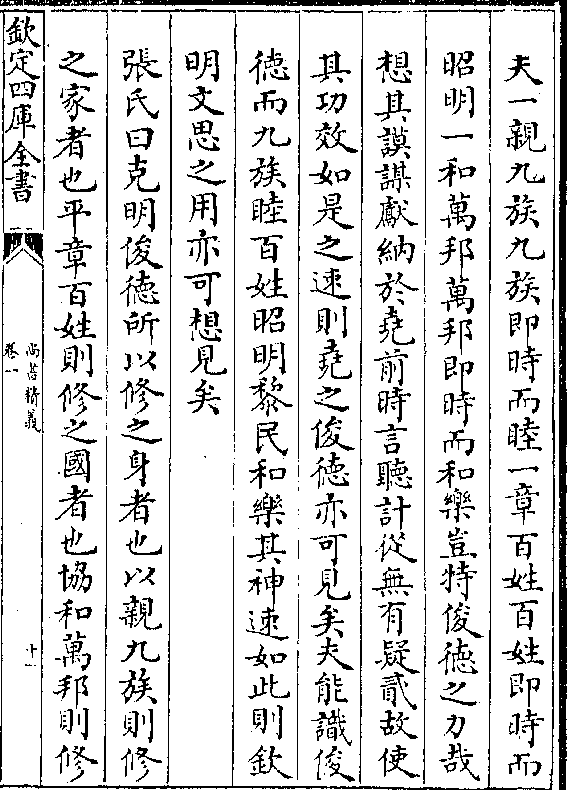 夫一親九族九族即時而睦一章百姓百姓即時而
昭明一和萬邦萬邦即時而和樂豈特俊徳之力哉
想其謨謀獻納於堯前時言聽計從無有疑貳故使
其功效如是之速則堯之俊徳亦可見矣夫能識俊
徳而九族睦百姓昭明黎民和樂其神速如此則欽
明文思之用亦可想見矣
張氏曰克明俊徳所以修之身者也以親九族則修
之家者也平章百姓則修之國者也協和萬邦則修
欽定四庫全書
尚書精義
卷一
十一